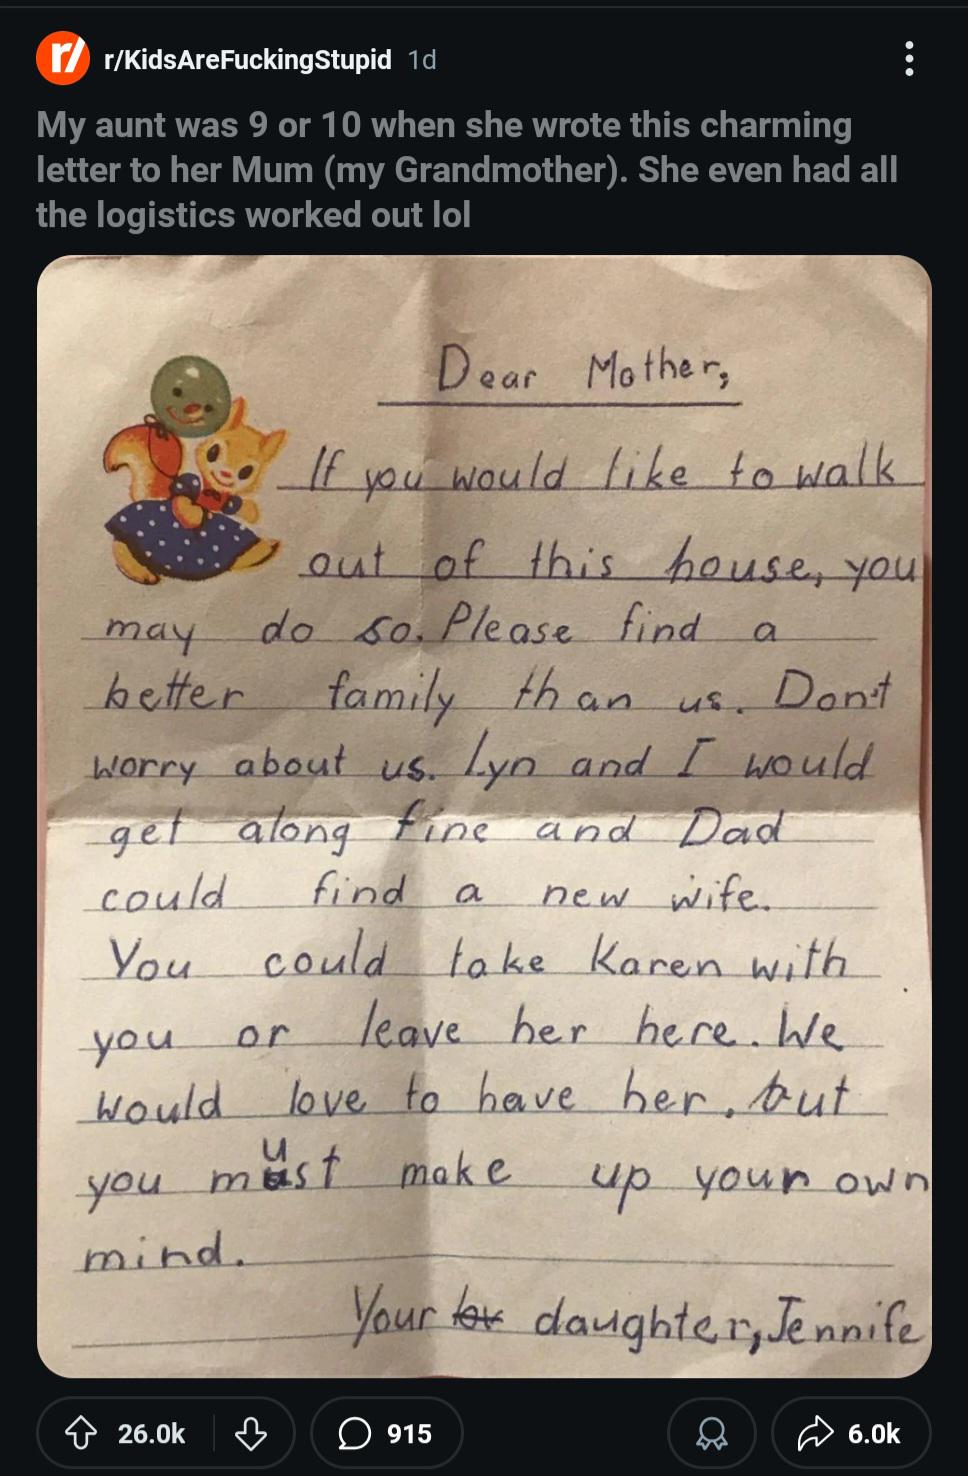 r/KidsAreFuckingStupid 1d
My aunt was 9 or 10 when she wrote this charming
letter to her Mum (my Grandmother). She even had all
the logistics worked out lol
Dear Mother,
If you would like to walk
out of this house, you
may do so. Please find a
better family than us. Don't
worry about us. Lyn and I would
get along fine and Dad
could find a new wife.
You could take Karen with
you or leave her here. We
would love to have her. but
you must make up your own
mind.
Your lov daughter, Jennife
26.0k
915
6.0k